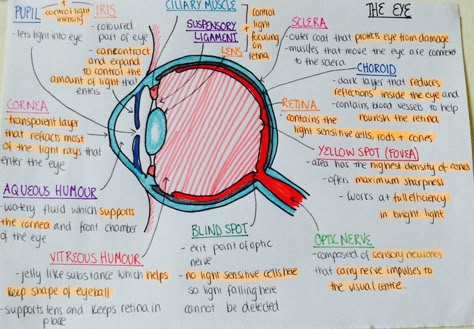 THE EYE
PUPIL
+ control light
intensity
- lets light into eye
IRIS
- coloured
part of eye
- can contract
and expand
to control the
amount of light that
enters
CILIARY MUSCLE
SUSPENSORY
LIGAMENT
LENS
control
light
+
focusing
on
retina
SCLERA
- outer coat that protects eye from damage
- muscles that move the eye are connected
to the sclera
CHOROID
- dark layer that reduces
reflections inside the eye and
- contains blood vessels to help
nourish the retina
RETINA
- contains the
light sensitive cells, rods + cones
YELLOW SPOT (FOVEA)
- area has the highest density of cones
- offers maximum sharpness
- works at full efficiency
in bright light
OPTIC NERVE
- composed of sensory neurones
that carry nerve impulses to
the visual centre.
BLIND SPOT
- exit point of optic
nerve
- no light sensitive cells here
so light falling here
cannot be detected
CORNEA
- transparent layer
that refracts most
of the light rays that
enter the eye
AQUEOUS HUMOUR
- watery fluid which supports
the cornea and front chamber
of the eye
VITREOUS HUMOUR
- jelly like substance which helps
keep shape of eyeball
- supports lens and keeps retina in
place